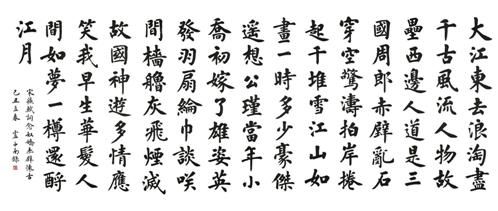 大江東去浪淘盡
千古風流人物故
壘西邊人道是三
國周郎赤壁亂石
穿空驚濤拍岸捲
起千堆雪江山如
畫一時多少豪傑
遙想公瑾當年小
喬初嫁了雄姿英
發羽扇綸巾談咲
間檣艣灰飛煙滅
故國神遊多情應
笑我早生華髮人
間如夢一樽還酹
江月
宋蘇軾詞念奴嬌赤壁懷古